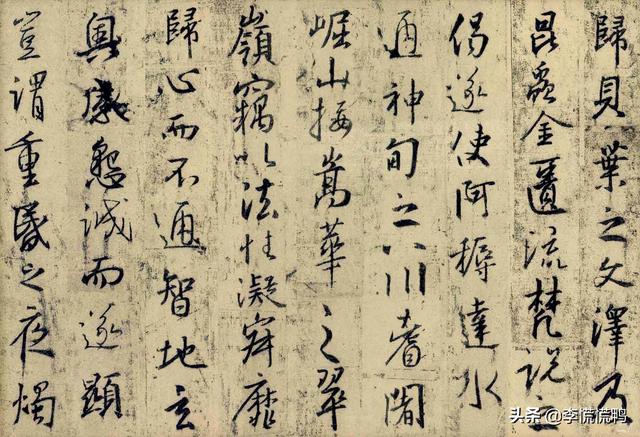 歸貝葉之文澤及
昆蟲金匱流梵說之
偈遂使阿耨達水
通神甸之八川耆闍
崛山接嵩華之翠
嶺竊以法性凝寂靡
歸心而不通智地玄
奧感懇誠而遂顯
豈謂重昏之夜燭
头条 @李慌慌鸭